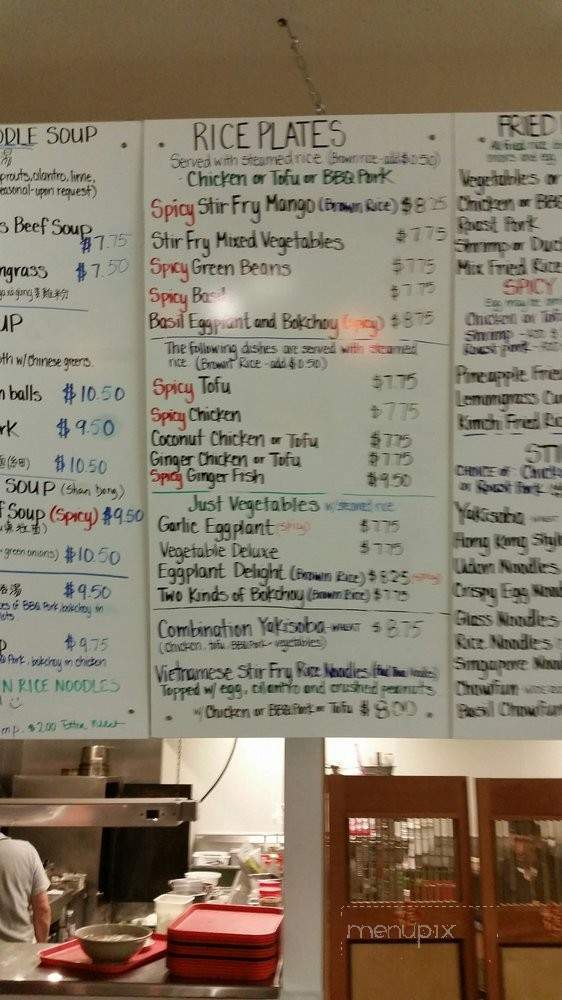 DLE SOUP
prouts, cilantro, lime,
easonal-upon request)
s Beef Soup
$7.75
ngrass $7.50
UP
oth w/Chinese greens.
n balls $10.50
rk $9.50
$10.50
SOUP (Shan Dong)
f Soup (Spicy) $9.50
green onions) $10.50
$9.50
ces of BBQ Pork, bokchoy in
$9.75
Pork, bokchoy in chicken
N RICE NOODLES
mp. $2.00 Extra Meat
RICE PLATES
Served with steamed rice (Brown rice - add $0.50)
Chicken or Tofu or BBQ Pork
Spicy Stir Fry Mango (Brown Rice) $8.25
Stir Fry Mixed Vegetables $7.75
Spicy Green Beans $7.75
Spicy Basil $7.75
Basil Eggplant and Bokchoy (Spicy) $8.75
The following dishes are served with steamed
rice (Brown Rice - add $0.50)
Spicy Tofu $7.75
Spicy Chicken $7.75
Coconut Chicken or Tofu $7.75
Ginger Chicken or Tofu $7.75
Spicy Ginger Fish $9.50
Just Vegetables w/steamed rice
Garlic Eggplant (Spicy) $7.75
Vegetable Deluxe $7.75
Eggplant Delight (Brown Rice) $8.25 (Spicy)
Two Kinds of Bokchoy (Brown Rice) $7.75
Combination Yakisoba - WHEAT $8.75
(Chicken, tofu, BBQ Pork + vegetables)
Vietnamese Stir Fry Rice Noodles (Pad Thai Noodles)
Topped w/ egg, cilantro and crushed peanuts
w/ Chicken or BBQ Pork or Tofu $8.00
FRIED
Vegetables or
Chicken or BB
Roast Pork
Shrimp or Duc
Mix Fried Rice
SPICY
Chicken or Tof
Shrimp
Roast pork
Pineapple Frie
Lemongrass Cu
Kimchi Fried Ric
STI
CHOICE of: Chick
or Roast Pork
Yakisoba WHEAT
Hong Kong Style
Udon Noodles
Crispy Egg Nood
Glass Noodles
Rice Noodles
Singapore Nood
Chowfun
Basil Chowfun
menupix